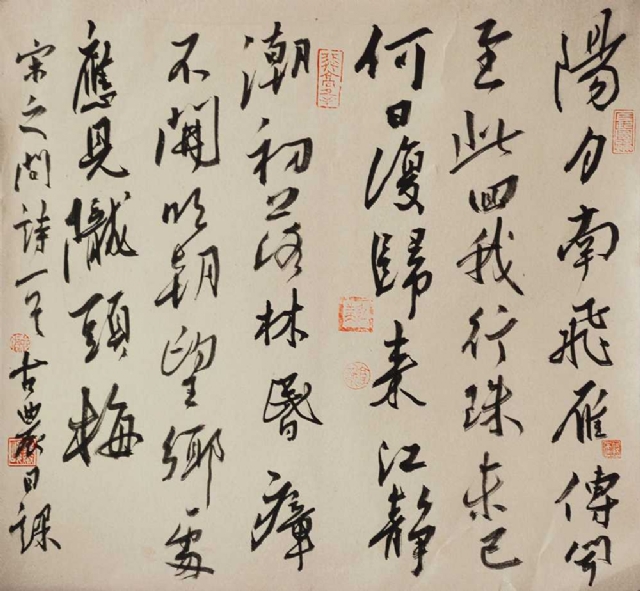 陽月南飛雁傳聞
至此回我行殊未已
何日復歸來江靜
潮初落林昬瘴
不開明朝望鄉處
應見隴頭梅
宋之問詩一首古農日課